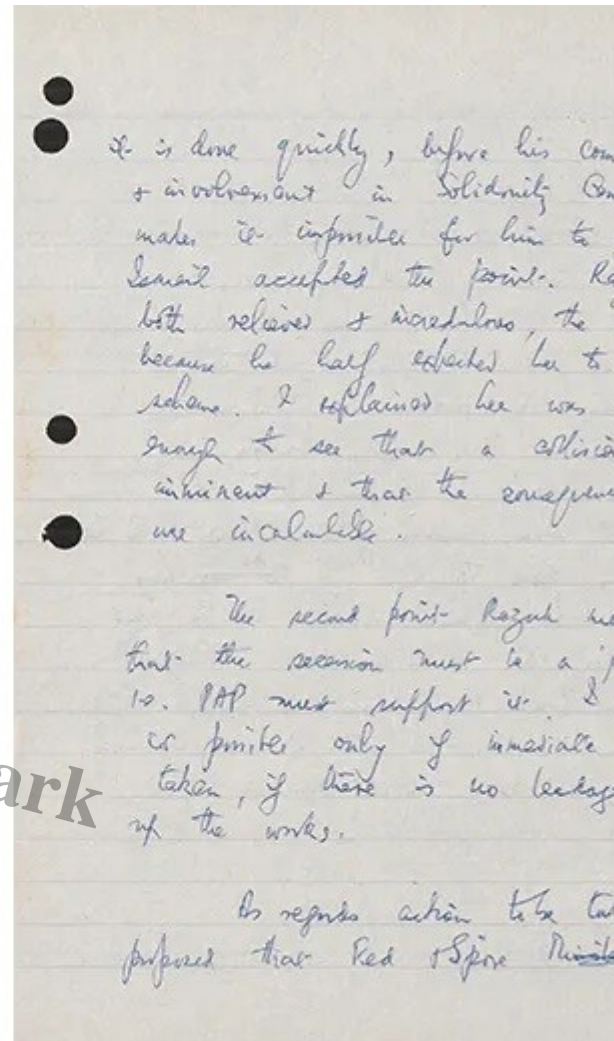 it is done quickly, before his com
& involvement in Solidarity Con
makes it impossible for him to
Ismail accepted the point. Ra
both relieved & incredulous, the
because he half expected her to
scheme. I explained her was
enough to see that a collision
imminent & that the consequen
were incalculable.
The second point Razak
that the secession must be a
ie. PAP must support it. I
is possible only if immediate
taken, if there is no leakage
up the works.
As regards action to be ta
proposed that Fed & S'pore
ark